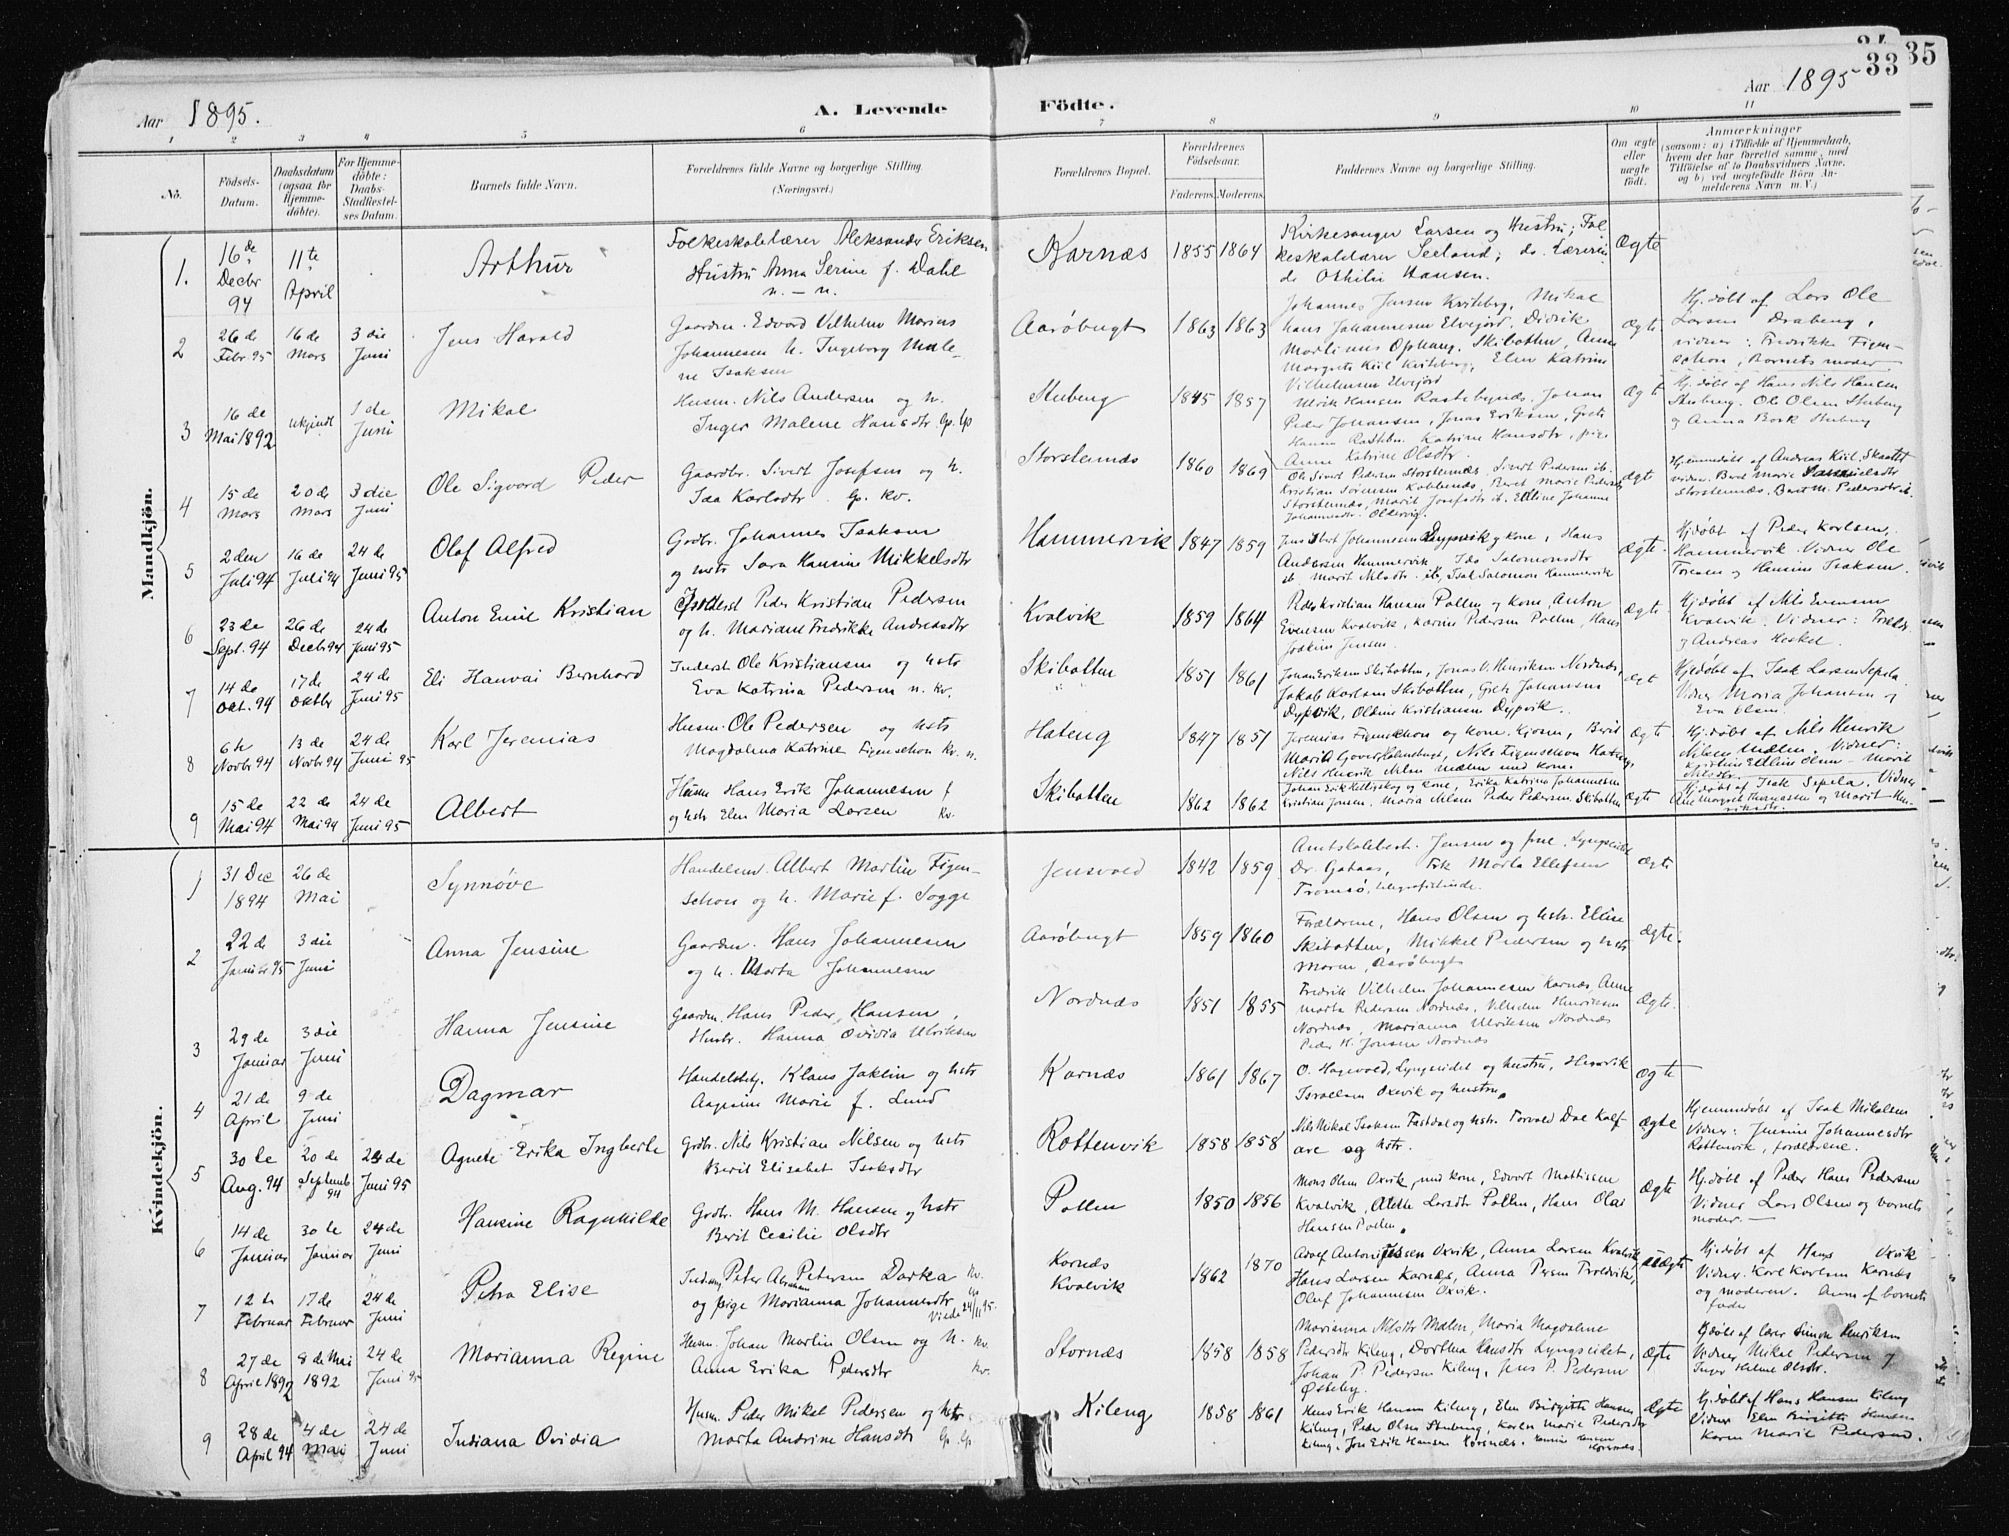 35
33
Aar 1895.
A. Levende
Födte.
Aar 1895
1 2 3 4 5 6 7 8 9 10 11
No.
Födsels-Datum.
Daabsdatum (ogsaa for Hjemme-döbte).
For Hjemme-döbte: Daabs-Stadfæstel-ses Datum.
Barnets fulde Navn.
Forældrenes fulde Navne og borgerlige Stilling. (Næringsvei.)
Forældrenes Bopæl.
Forældrenes Födselsaar.
Faderens. Moderens.
Faddernes Navne og borgerlige Stilling.
Om ægte eller uægte födt.
Anmærkninger
(saasom: a) i Tilfælde af Hjemmedaab, hvem der har forrettet samme, med Tilföielse af to Daabsvidners Navne, og b) ved uægtefödte Börn An-melderens Navn m. V.)
Mandkjön.
1. 16 de Decbr 94 11te April Arthur
Folkeskolelærer Aleksander Eriksen
Hustru Anna Serine f. Dahl
n. – n.
Karnæs 1855 1864
Kirkesanger Larsen og Hustru; Fol-
keskolelærer Seeland; do. Lærerin
de Othilie Hansen.
Ægte
2 26 de Febr. 95 16 de Mars 3 die Juni Jens Harald
Gaardm. Edvard Vilhelm Marius
Johannesen h. Ingeborg Male-
ne Isaksen
Aaröbugt 1863 1863
Johannes Jensen Kviteberg, Mikal
Hans Johannesen Elvejord, Didrik
Martinus Ophaug, Skibotten, Anne
Margrete Kiil Kviteberg, Elen Katrine
Vilhelmsen Elvejord
Ægte
Hj. döbt af Lars Ole
Larsen Draberg,
vidner: Fredrikke Figen-
schou, Barnets moder
3 16 de Mai 1892 ukjendt 1 de Juni Mikal
Husm. Nils Andersen og h.
Inger Malene Hansdtr Lp. Lp
Stubeng 1845 1857
Ulrik Hansen Rastebynæs, Johan
Peder Johansen, Jonas Eriksen, Grete
Hansen Rasteb. Katrine Hansdtr, pige
Anne Katrine Olsdtr.
Ægte
Hj. döbt af Hans Nils Hansen
Stubeng. Ole Olsen Stubeng
og Anna Bork Stubeng
4 15 de Mars 20 de Mars 3 die Juni Ole Sigvard Peder
Gaardbr. Sivert Josefsen og h.
Ida Karlsdtr. Lp. Kv.
Storstennæs 1860 1869
Ole Sivert Pedersen Storstennæs, Sivert Pedersen ib.
Kristian Sörensen Kobbenæs, Beret Marie Pedersdtr
Storstennæs, Marit Josefsdtr ib. Elline Johanne
Johannesdtr. Oldervig.
Ægte
Hjemmedöbt af Andreas Kiil, Skattet
vidner: Beret Marie Samuelsdtr
Storstennæs, Berit M. Pedersdtr ib.
5 2 den Juli 94 16 de Juli 94 24 de Juni 95 Olaf Alfred
Grdbr. Johannes Isaksen
og hstr Sara Hansine Mikkelsdtr
Hammervik 1847 1859
Andersen Hammervik, Ida Salomonsdtr
ib. Marit Nilsdtr. ib, Isak Salomon Hammervik
Ægte.
Hj. döbt af Peder Karlsen,
Hammervik. Vidner Ole
Toresen og Hansine Isaksen.
6 23 de Sept. 94 26 de Decbr 94 24 de Juni 95 Anton Emil Kristian
Inderst Peder Kristian Pedersen
og h. Mariane Fredrikke Andreasdtr
Kvalvik 1859 1864
Peder Kristian Hansen Pollen og kone, Anton
Evensen Kvalvik, Karine Pedersen Pollen, Hans
Joakim Jensen.
Ægte.
Hj. döbt af Nils Evensen
Kvalvik. Vidner: Foreldr.
og Andreas Heskel.
7 14 de Okt. 94 17 de Oktbr 24 de Juni 95 Eli Hanvai Bernhard
Inderst Ole Kristiansen og hstr
Eva Katrina Pedersen n. kv.
Skibotten 1851 1861
Johan Eriksen Skibotten, Jonas V. Henriksen Nordnæs,
Jakob Karlsen Skibotten, Grete Johansens
Dypvik, Oldine Kristiansen Dypvik.
Ægt
Hj. döbt af Isak Larsen Sepela
Vidner Maria Johansen og
Eva Olsen.
8 6 te Novbr 94 13 de Novbr 94 24 de Juni 95 Karl Jeremias
Husm. Ole Pedersen og hstr
Magdalena Katrine Figenschou Kv. n.
Hateng 1847 1851
Jeremias Figenschou og kone. Kjosen, Berit
Nils Henrik Nilsen Mælen med kone.
Ægt
Hj. döbt af Nils Henrik
Nilsen Mælen. Vidner:
Kristine Elline Olsen – Marit
Nilsdtr.
9 15 de Mai 94 22 de Mai 94 24 de Juni 95 Albert
Husm Hans Erik Johannesen f
og hstr Elen Maria Larsen Kv.
Skibotten 1862 1862
Kristian Jensen. Maria Nilsen Peder Pedersen. Skibotten
Ægte
Hj. döbt af Isak Sepela. Vidner
Ane Margret Thomassen og Marit Hen-
riksdtr.
Kvindekjön.
1 31 Dec 1894 26 de Mai Synnöve
Handelsm. Albert Martin Figen-
schou og h. Marie f. Sogge
Jensvold 1842 1859
Amtskolebest. Jensen og frue, Lyngseidet
Dr. Gahaas, Frk Marta Ellefsen
Tromsö, telegrafistinde.
Ægte
2 22 de Januar 95 3 die Juni Anna Jensine
Gaardm. Hans Johannesen
og h. Marta Johannesen
Aaröbugt 1859 1860
Forældrene, Hans Olsen og hstr. Elline
Skibotten, Mikkel Pedersen og hstr
Maren, Aaröbugt
Ægte.
3 29 de Januar 3 die Juni Hanna Jensine
Gaardm. Hans Peder Hansen,
Hustr. Hanna Ovidia Ulriksen
Nordnæs 1851 1855
Fredrik Vilhelm Johannesen Karnæs, Anne
Marta Pedersen Nordnæs, Vilhelm Henriksen
Nordnæs, Marianna Ulriksen Nordnæs
Peder H. Jensen Nordnæs
Ægte.
4 21 de April 9 de Juni Dagmar
Handelsbetj. Klaus Jaklin og hstr
Aagesine Marie f. Lund
Karnæs 1861 1867
O. Hagevold, Lyngseidet og hustru, Henrik
Israelsen Oxvik og hustru.
Ægte
5 30 te Aug. 94 20 de Septemb 94 24 de Juni 95 Agnete Erika Ingberte
Grdbr. Nils Kristian Nilsen og hstr
Berit Elisabet Isaksdtr
Rottenvik 1858 1858
Nils Mikal Isaksen Fastdal og hstr. Torvald Dae Kalf-
are og hstr.
Ægte
Hjemmedöbt af Isak Mikalsen
Vidner: Jensine Johannesdtr
Rottenvik, forældrene.
6 14 de Januar 30 te Januar 24 de Juni Hansine Ragnhilde
Grdbr. Hans M. Hansen og hstr
Berit Cecilie Olsdtr
Pollen 1850 1856
Mons Olsen Oxvik, med kone, Edvart Mattissen
Kvalvik, Alethe Larsdtr Pollen, Hans Olai
Hansen Pollen.
Ægte
Hj. döbt af Peder Hans Pedersen
Vidner Lars Olsen og barnets
moder. –
7 12 te Februar 17 de Februar 24 de Juni Petra Elise
Indensg. Peter Abraham Petersen Darka Kv.
og pige Marianna Johannesdtr Lp
Viede 24/11 95.
Karnæs
Kvalvik
1862 1870
Adolf Antoni Jessen Oxvik, Anna Larsen Kvalvik,
Hans Larsen Karnæs, Anna Persen Troldvik,
Oluf Johannesen Oxvik.
uægte
Hj. döbt af Hans Oxvik
Vidner. Karl Karlsen Karnæs
og moderen. Anm. af barnets
fader
8 27 de April 1892 8 de Mai 1892 24 de Juni 95 Marianna Regine
Husm. Johan Martin Olsen og h. Kv.
Anna Erika Pedersdtr Kv.
Stornæs 1858 1858
Marianna Nilsdtr Mælen, Maria Magdalene
Pedersdtr Kileng, Dorthea Hansdtr Lyngseidet,
Johan P. Pedersen Kileng, Jens P. Pedersen
Österby.
Ægte
Hjdöbt af lærer Simon Henriksen
Vidner Mikal Pedersen og
Inger Helene Olsdtr.
9 28 de April 94 4 de Mai 24 de Juni Indiana Ovidia
Husm. Peder Mikal Pedersen og hstr
Marta Andrine Hansdtr Lp. Lp.
Kileng 1858 1861
Hans Erik Hansen Kileng, Elen Birgitte Hansen
Kileng, Peder Olsen Stubeng, Karen Marie Pedersdtr
Kileng. Jon Erik Hansen Hørsnæs.
Ægte
Hj.döbt af Hans Hansen Kileng
Vidner Elen Birgitte Hansen
Karen Marie Pedersen.